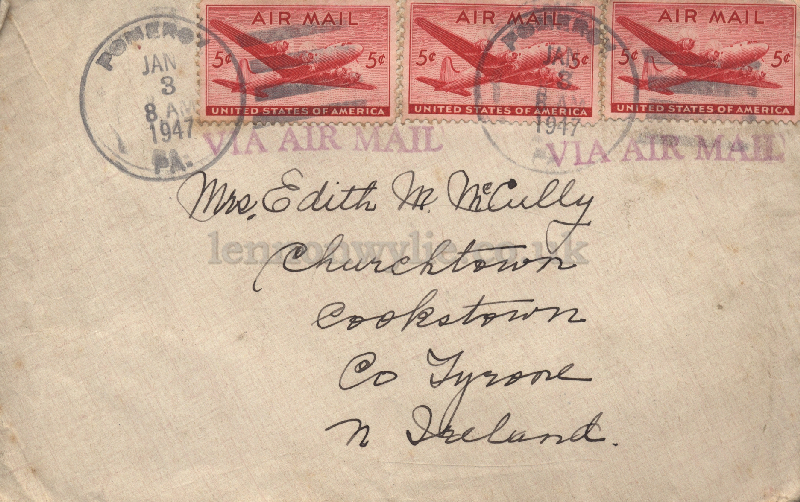 AIR MAIL AIR MAIL AIR MAIL
5¢ 5¢ 5¢ 5¢ 5¢ 5¢
UNITED STATES OF AMERICA UNITED STATES OF AMERICA UNITED STATES OF AMERICA
POMEROY POMEROY
JAN JAN
3 3
8 AM 8 AM
1947 1947
PA.
VIA AIR MAIL VIA AIR MAIL
Mrs. Edith M. McCully
lennonwylie.co.uk
Churchtown
Cookstown
Co Tyrone
N Ireland.